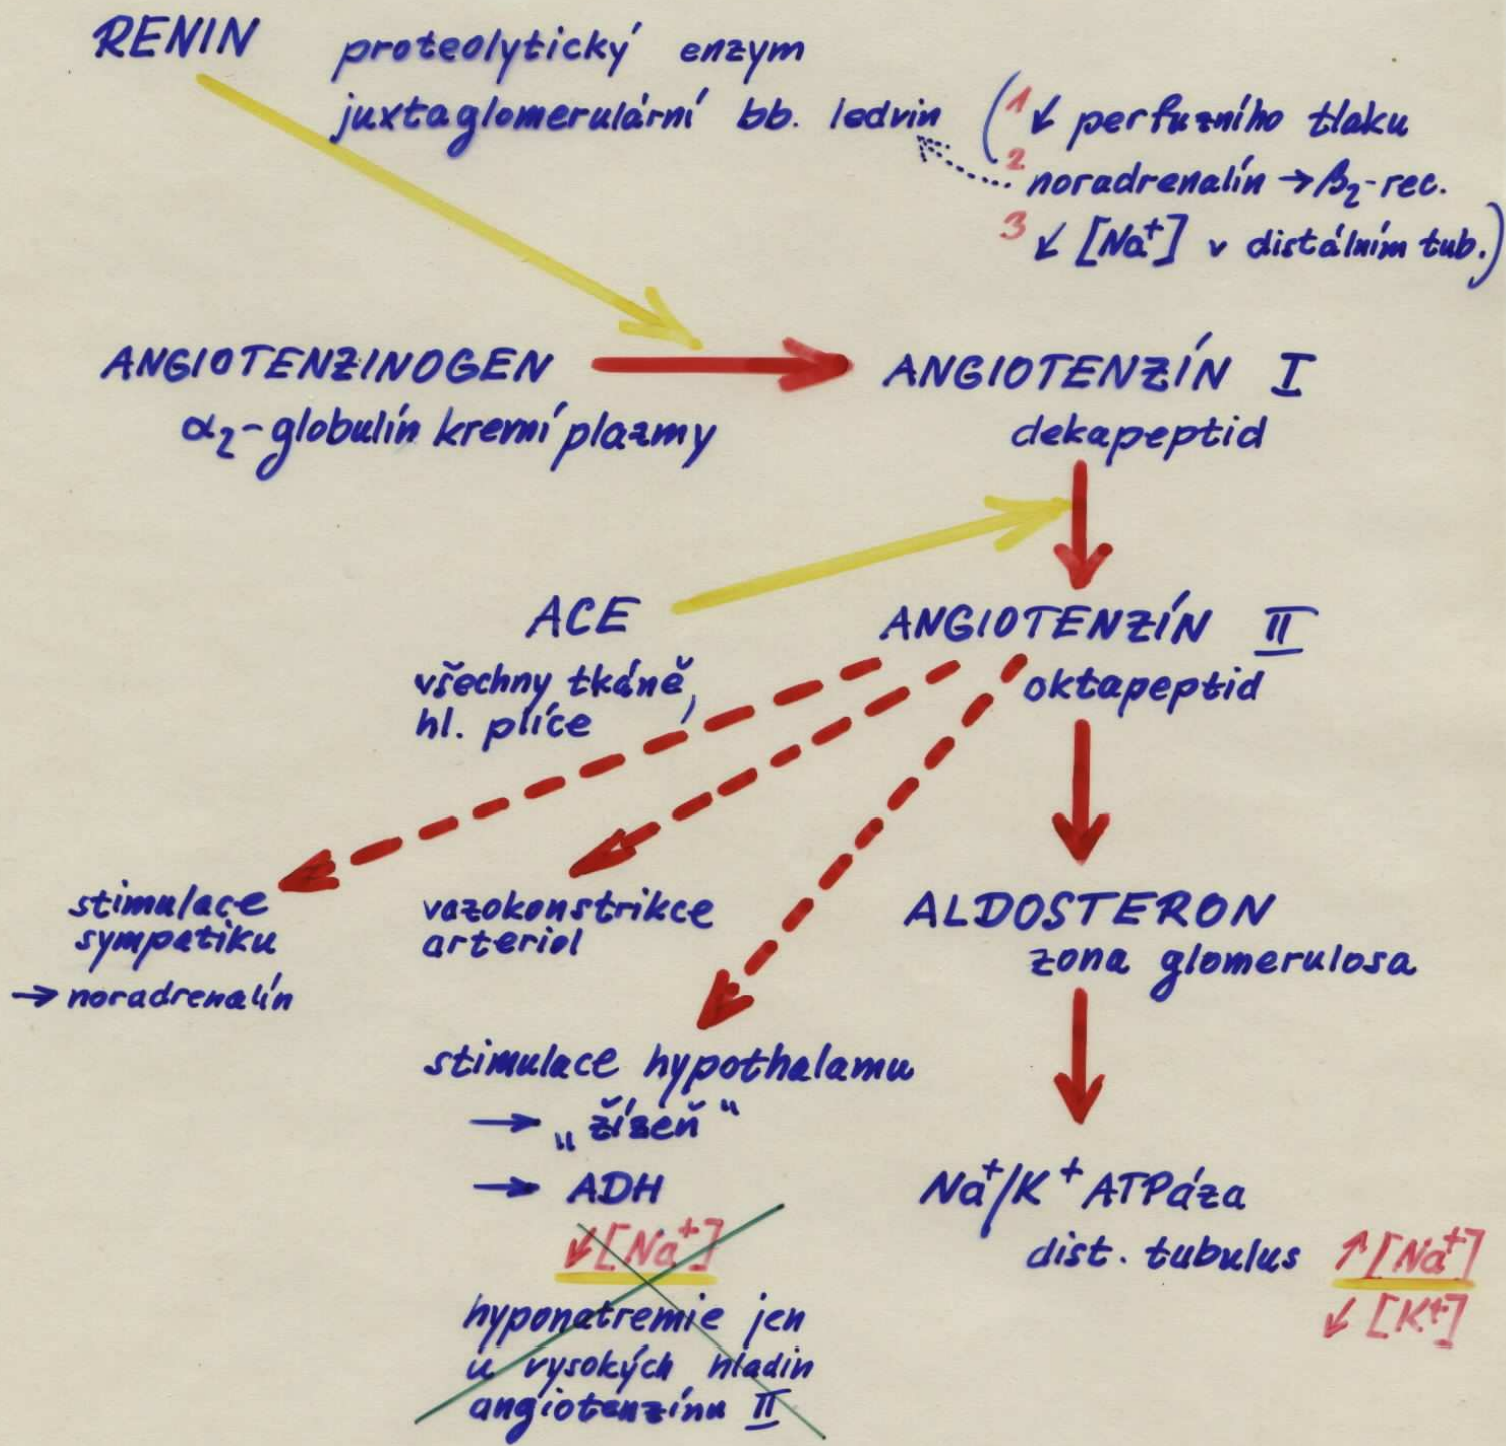 RENIN proteolytický enzym
juxtaglomerulární bb. ledvin
(1 ↙ perfuzního tlaku
2 noradrenalín → β₂-rec.
3 ↙ [Na⁺] v distálním tub.)
ANGIOTENZINOGEN → ANGIOTENZÍN I
α₂-globulín krevní plazmy
dekapeptid
ACE
všechny tkáně,
hl. plíce
ANGIOTENZÍN II
oktapeptid
stimulace
sympatiku
→ noradrenalín
vazokonstrikce
arteriol
ALDOSTERON
zona glomerulosa
stimulace hypothalamu
→ „žízeň“
→ ADH
↙[Na⁺]
hyponatremie jen
u vysokých hladin
angiotenzínu II
Na⁺/K⁺ ATPáza
dist. tubulus
↗[Na⁺]
↙[K⁺]